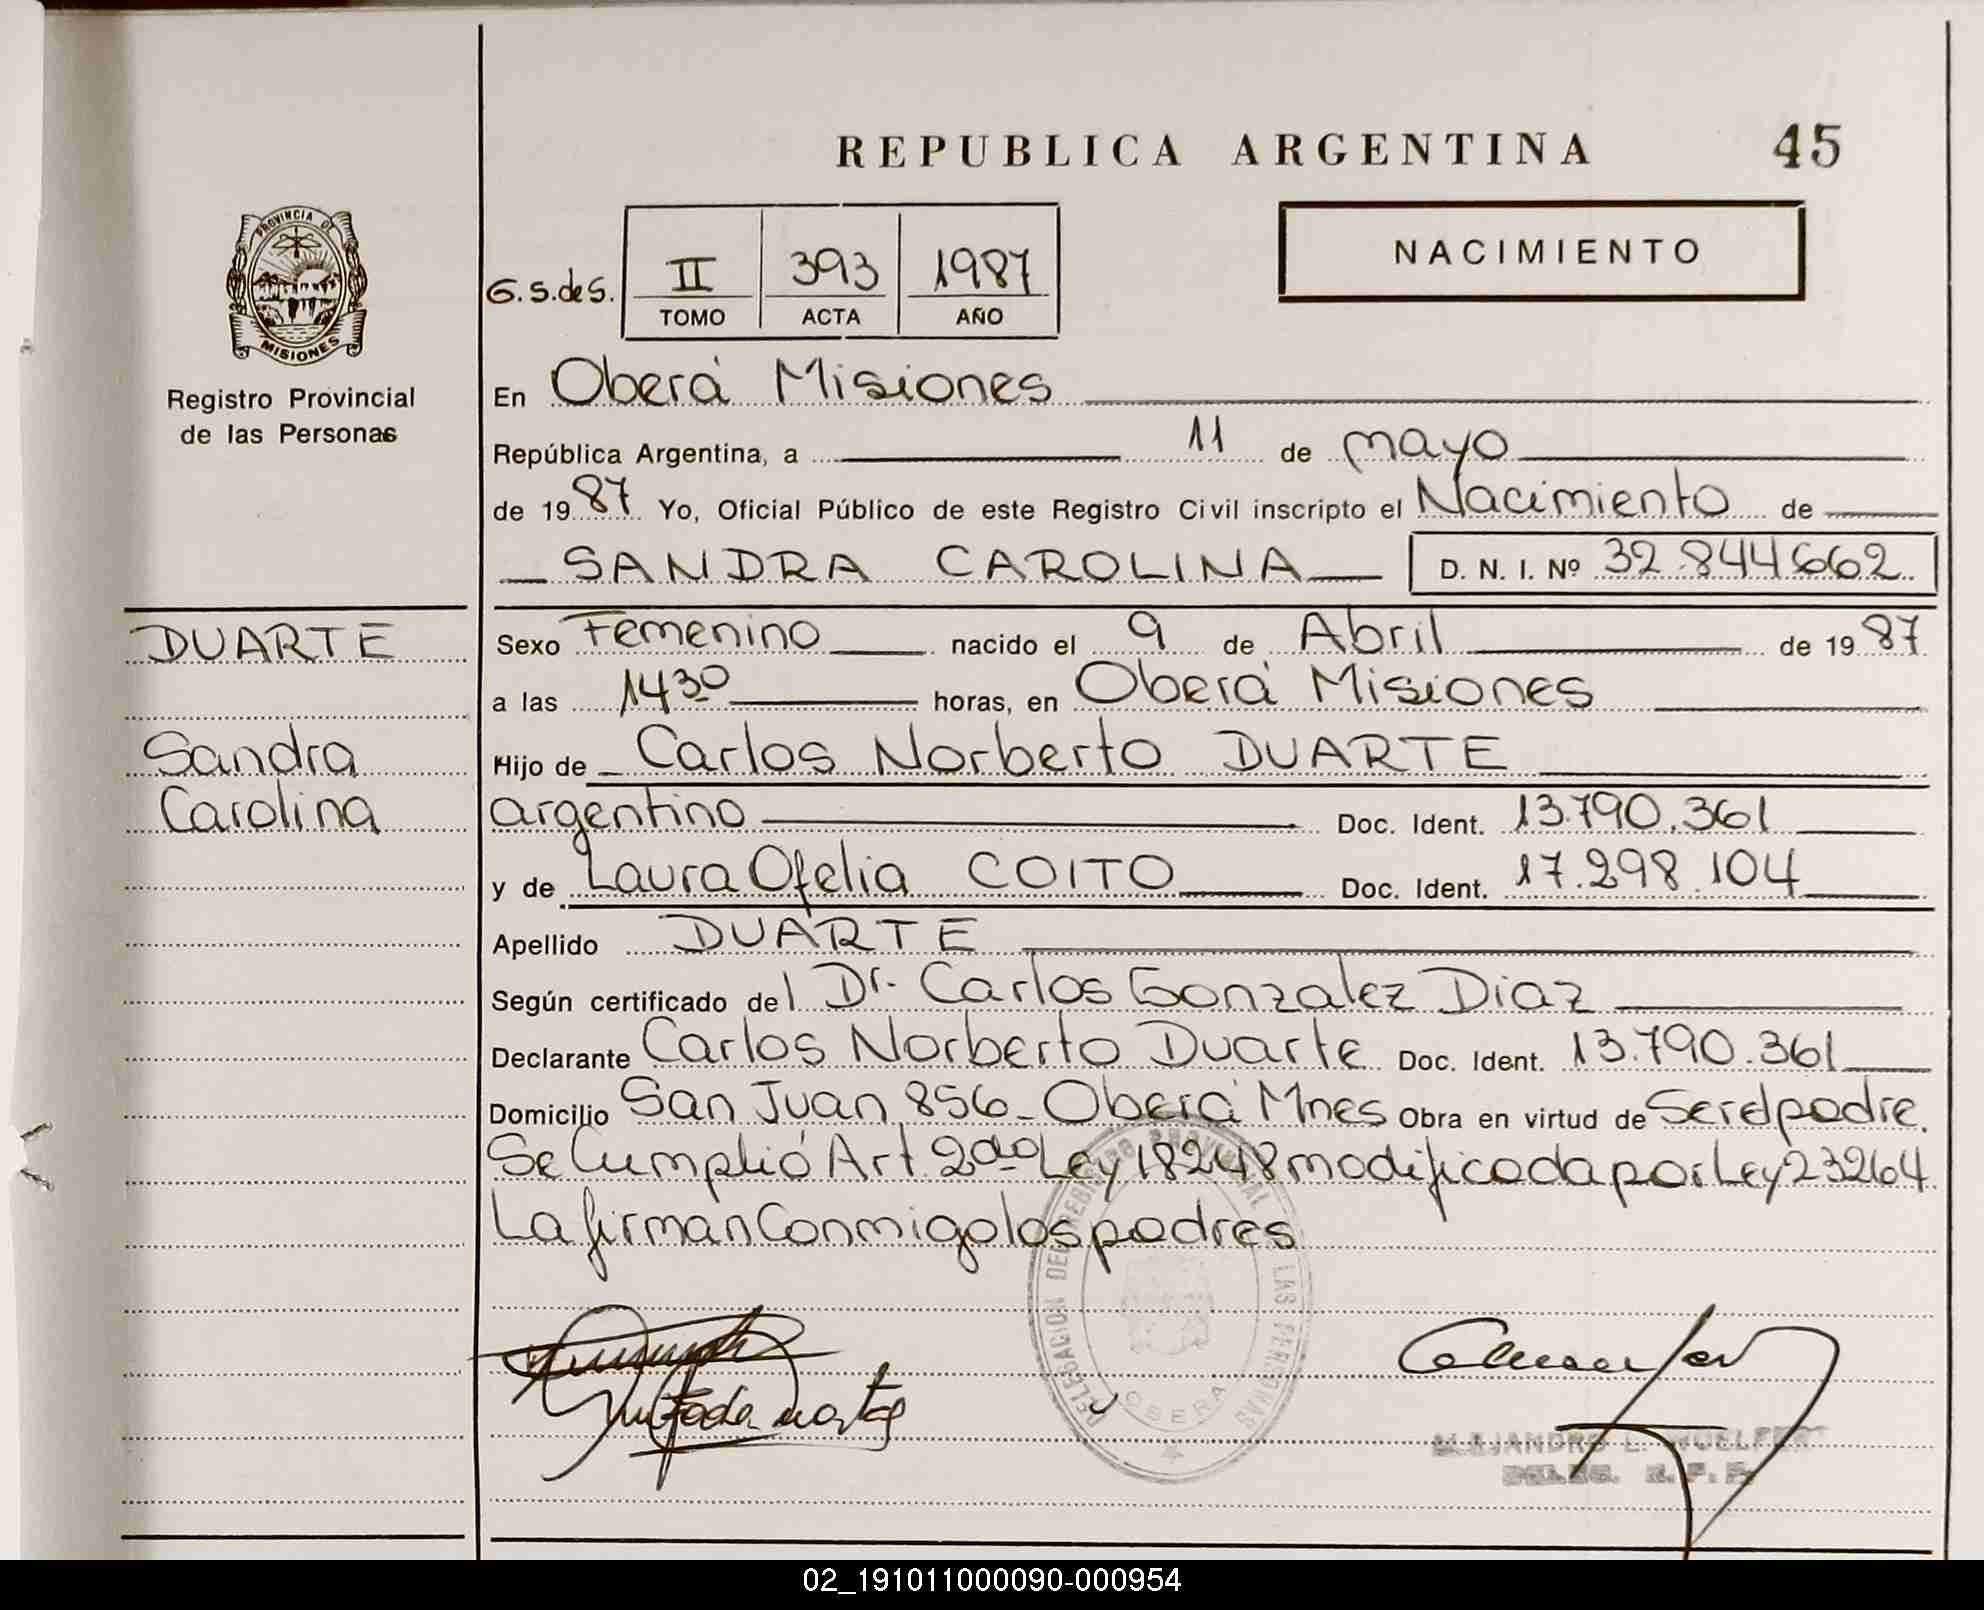 REPUBLICA ARGENTINA 45
PROVINCIA DE
MISIONES
Registro Provincial
de las Personas
NACIMIENTO
G.S.deS. II 393 1987
TOMO ACTA AÑO
En Oberá Misiones
República Argentina, a 11 de mayo
de 1987 Yo, Oficial Público de este Registro Civil inscripto el Nacimiento de
SANDRA CAROLINA D. N. I. Nº 32.844662
DUARTE
Sandra
Carolina
Sexo Femenino nacido el 9 de Abril de 1987
a las 1430 horas, en Oberá Misiones
Hijo de Carlos Norberto DUARTE
argentino Doc. Ident. 13.790.361
y de Laura Ofelia COITO Doc. Ident. 17.298.104
Apellido DUARTE
Según certificado del Dr. Carlos Gonzalez Diaz
Declarante Carlos Norberto Duarte Doc. Ident. 13.790.361
Domicilio San Juan 856- Oberá Mnes Obra en virtud de Ser el padre.
Se Cumplió Art. 2do Ley 18248 modificada por Ley 23264
La firman Conmigo los padres
DELEGACION DEL REGISTRO PROVINCIAL DE LAS PERSONAS
OBERA
ALEJANDRO L. WUELFER
DELEG. R. P. P.
02_191011000090-000954